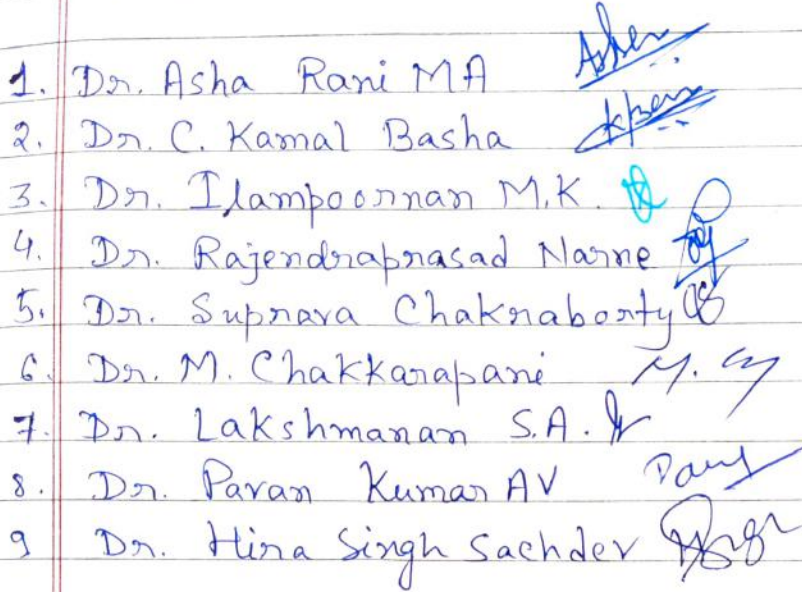 1. Dr. Asha Rani MA
2. Dr. C. Kamal Basha
3. Dr. Ilampoornan M.K.
4. Dr. Rajendraprasad Narne
5. Dr. Suprava Chakraborty
6. Dr. M. Chakkarapani
7. Dr. Lakshmanan S.A.
8. Dr. Pavan Kumar AV
9 Dr. Hira Singh Sachdev